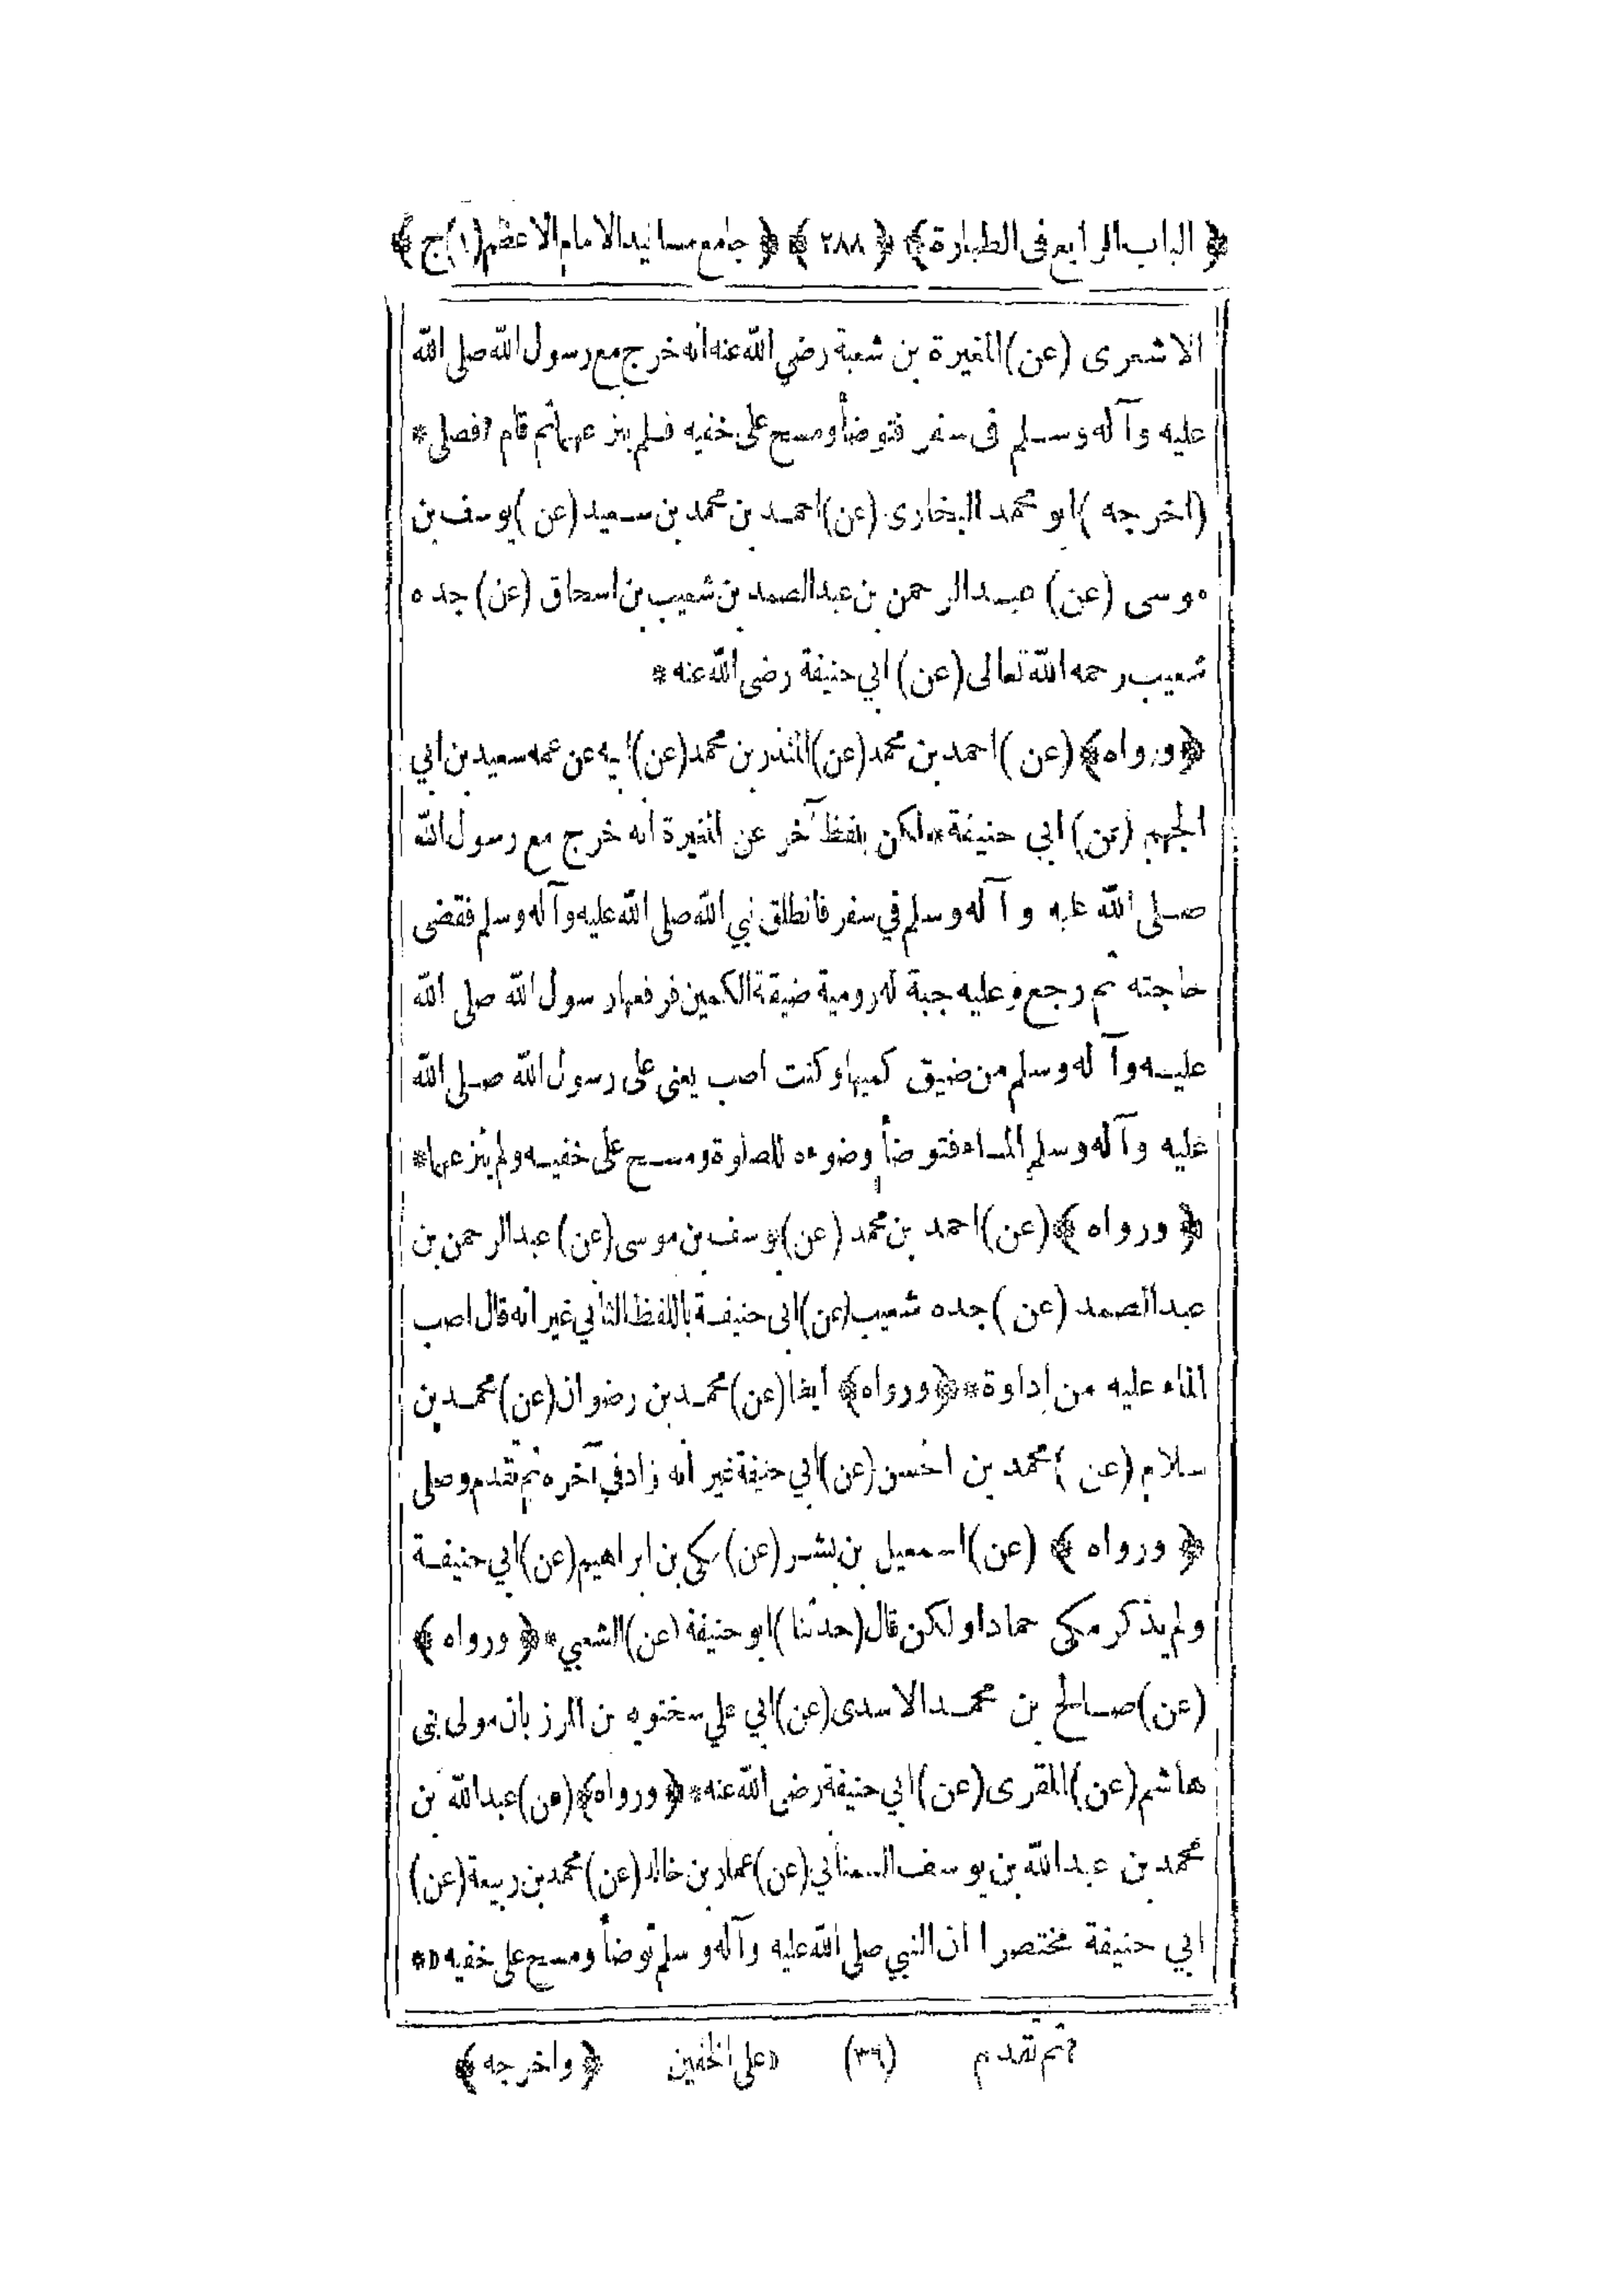 ﴿ الباب الرابع فى الطهارة ﴾ ﴿ ٢٨٨ ﴾ ﴿ جامع مسانيد الامام الاعظم (١) ج ﴾
الاشعرى (عن) المغيرة بن شعبة رضي الله عنه انه خرج مع رسول الله صلى الله
عليه وآله وسلم فى سفر فتوضأ ومسح على خفيه فلم ينزعهما ثم قام ٢ فصلى *
(اخرجه) ابو محمد البخارى (عن) احمد بن محمد بن سعيد (عن) يوسف بن
موسى (عن) عبد الرحمن بن عبد الصمد بن شعيب بن اسحاق (عن) جده
شعيب رحمه الله تعالى (عن) ابي حنيفة رضى الله عنه *
﴿ ورواه ﴾ (عن) احمد بن محمد (عن) المنذر بن محمد (عن) ابيه عن عمه سعيد بن ابي
الجهم (عن) ابي حنيفة * لكن بلفظ آخر عن المغيرة انه خرج مع رسول الله
صلى الله عليه وآله وسلم في سفر فانطلق نبي الله صلى الله عليه وآله وسلم فقضى
حاجته ثم رجع وعليه جبة له رومية ضيقة الكمين فرفعها رسول الله صلى الله
عليه وآله وسلم من ضيق كميها وكنت اصب يعنى على رسول الله صلى الله
عليه وآله وسلم الماء فتوضأ وضوءه للصلوة ومسح على خفيه ولم ينزعهما *
﴿ ورواه ﴾ (عن) احمد بن محمد (عن) يوسف بن موسى (عن) عبد الرحمن بن
عبد الصمد (عن) جده شعيب (عن) ابى حنيفة باللفظ الثاني غير انه قال اصب
الماء عليه من اداوة * ﴿ ورواه ﴾ ايضا (عن) محمد بن رضوان (عن) محمد بن
سلام (عن) محمد بن الحسن (عن) ابي حنيفة غير انه زاد في آخره ثم تقدم وصلى
﴿ ورواه ﴾ (عن) اسمعيل بن بشر (عن) مكى بن ابراهيم (عن) ابي حنيفة
ولم يذكر مكى حمادا ولكن قال (حدثنا) ابو حنيفة (عن) الشعبي * ﴿ ورواه ﴾
(عن) صالح بن محمد الاسدى (عن) ابي علي سختويه بن المرزبان مولى بنى
هاشم (عن) المقرى (عن) ابي حنيفة رضى الله عنه * ﴿ ورواه ﴾ (عن) عبد الله بن
محمد بن عبد الله بن يوسف السمناني (عن) عمار بن خالد (عن) محمد بن ربيعة (عن)
ابي حنيفة مختصرا ان النبي صلى الله عليه وآله وسلم توضأ ومسح على خفيه *
٢ ثم تقدم (٣٦) على الخفين ﴿ واخرجه ﴾